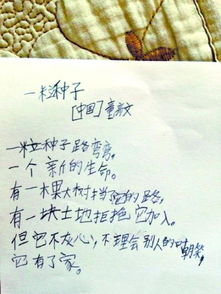 一粒种子
[中国] 童文
一粒种子路弯弯。
一个新的生命。
有一棵大树挡了它的路,
有一块土地拒绝它加入。
但它不灰心,不理会别人的嘲笑,
它有了家。